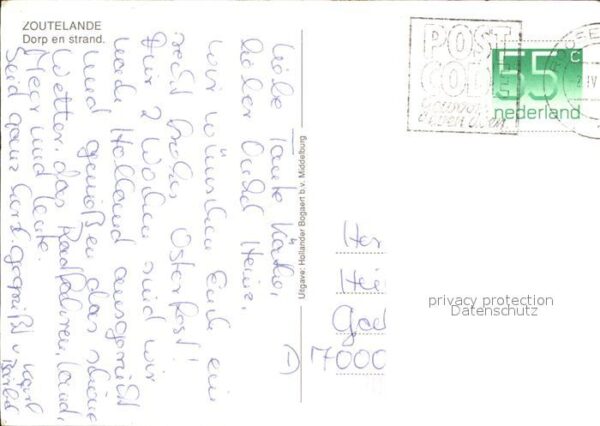 ZOUTELANDE
Dorp en strand.
Liebe Tante Käthe,
lieber Onkel Heinz,
wir wünschen Euch ein
recht frohes Osterfest!
Für 2 Wochen sind wir
nach Holland ausgerückt
und genießen das schöne
Wetter, das Radfahren, Land,
Meer und Leute.
Seid ganz herzl. gegrüßt v.
Uitgave: Hollander Bogaert b.v. Middelburg
POST
CODE
55 c
nederland
Her
Hei
7000
privacy protection
Datenschutz